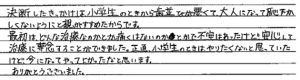 決断したきっかけは小学生のときから歯並びが悪くて、大人になって恥ずかしくないようにと親がすすめたからです。
最初は、どんな治療なのかとか痛くはないのかとかで不安はあったけど安心して
治療に専念することができました。正直、小学生のときはやりたくないと思っていた
けど今になって、やってよかったなと思います。
ありがとうございました。